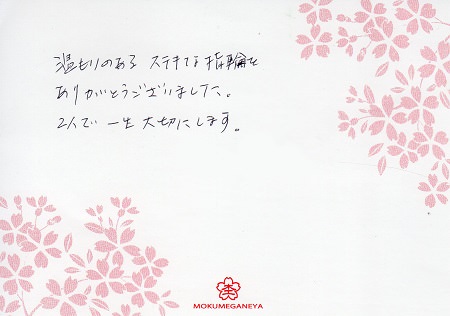 温もりのある ステキな指輪を
ありがとうございました。
2人で 一生 大切にします。
MOKUMEGANEYA